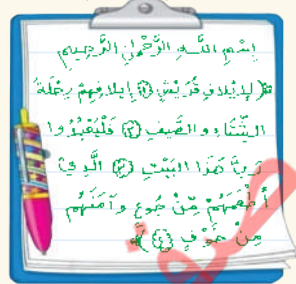 بِسْمِ اللَّهِ الرَّحْمَٰنِ الرَّحِيمِ
﴿لِإِيلَافِ قُرَيْشٍ ﴿١﴾ إِيلَافِهِمْ رِحْلَةَ
الشِّتَاءِ وَالصَّيْفِ ﴿٢﴾ فَلْيَعْبُدُوا
رَبَّ هَٰذَا الْبَيْتِ ﴿٣﴾ الَّذِي
أَطْعَمَهُم مِّن جُوعٍ وَآمَنَهُم
مِّنْ خَوْفٍ ﴿٤﴾﴾